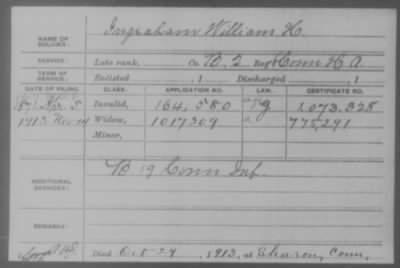 NAME OF SOLDIER: Ingraham William H.
SERVICE: Late rank, Co. B, 2 Reg't Conn H A.
TERM OF SERVICE: Enlisted , 1 Discharged , 1
DATE OF FILING. CLASS. APPLICATION NO. LAW. CERTIFICATE NO.
Invalid, 164,580 1,073,328
1913 Nov 14 Widow, 1017309 775,291
Minor,
ADDITIONAL SERVICES: B 19 Conn Inf.
REMARKS:
Died Oct 29, 1913, at Sharon, Conn,